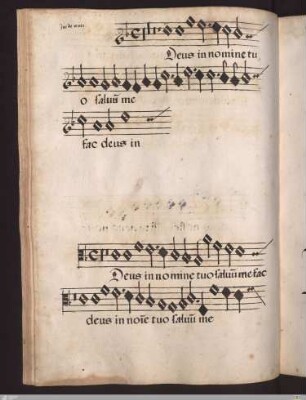 Deus in nomine tu
o saluū me
fac deus in
Deus in nomine tuo saluū me fac
deus in noīe tuo saluū me